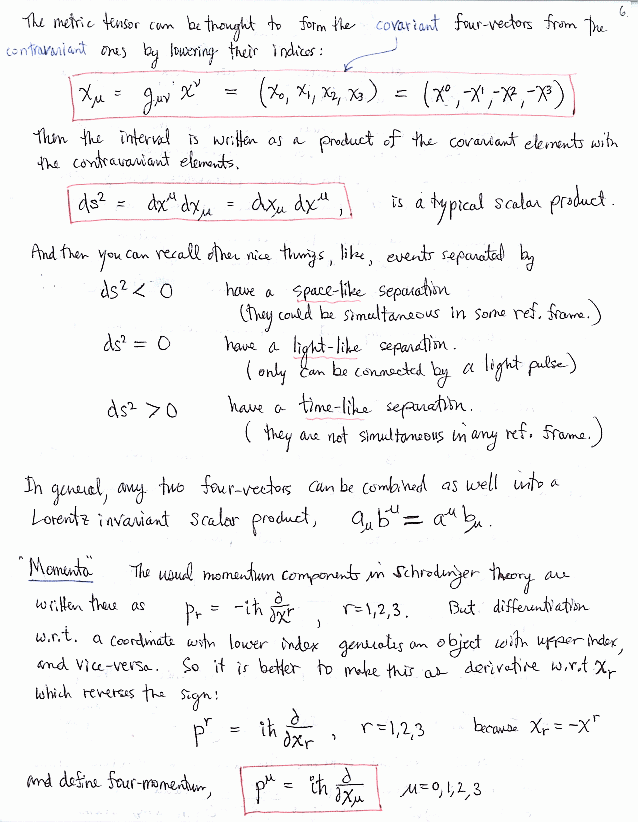 6.
The metric tensor can be thought to form the covariant four-vectors from the
contravariant ones by lowering their indices:
x_μ = g_μν x^ν = (x_0, x_1, x_2, x_3) = (x^0, -x^1, -x^2, -x^3)
Then the interval is written as a product of the covariant elements with
the contravariant elements.
ds² = dx^μ dx_μ = dx_μ dx^μ, is a typical scalar product.
And then you can recall other nice things, like, events separated by
ds² < 0 have a space-like separation
(they could be simultaneous in some ref. frame.)
ds² = 0 have a light-like separation.
(only can be connected by a light pulse)
ds² > 0 have a time-like separation.
(they are not simultaneous in any ref. frame.)
In general, any two four-vectors can be combined as well into a
Lorentz invariant scalar product, a_μ b^μ = a^μ b_μ.
"Momenta" The usual momentum components in Schrodinger theory are
written there as p_r = -iħ ∂/∂x^r, r=1,2,3. But differentiation
w.r.t. a coordinate with lower index generates an object with upper index,
and vice-versa. So it is better to make this as derivative w.r.t x_r
which reverses the sign:
p^r = iħ ∂/∂x_r, r=1,2,3 because x_r = -x^r
and define four-momentum, p^μ = iħ ∂/∂x_μ μ=0,1,2,3